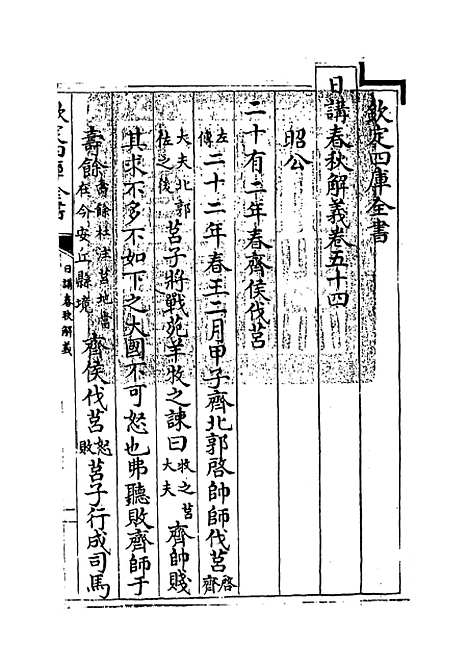 欽定四庫全書
日講春秋解義卷五十四
昭公
二十有二年春齊侯伐莒
左傳二十二年春王二月甲子齊北郭啓帥師伐莒啓齊
大夫北郭佐之後莒子將戰苑羊牧之諫曰牧之莒大夫齊帥賤
其求不多不如下之大國不可怒也弗聽敗齊師于
壽餘壽餘杜注莒地當在今安丘縣境齊侯伐莒怒敗莒子行成司馬
欽定四庫全書
日講春秋解義
一